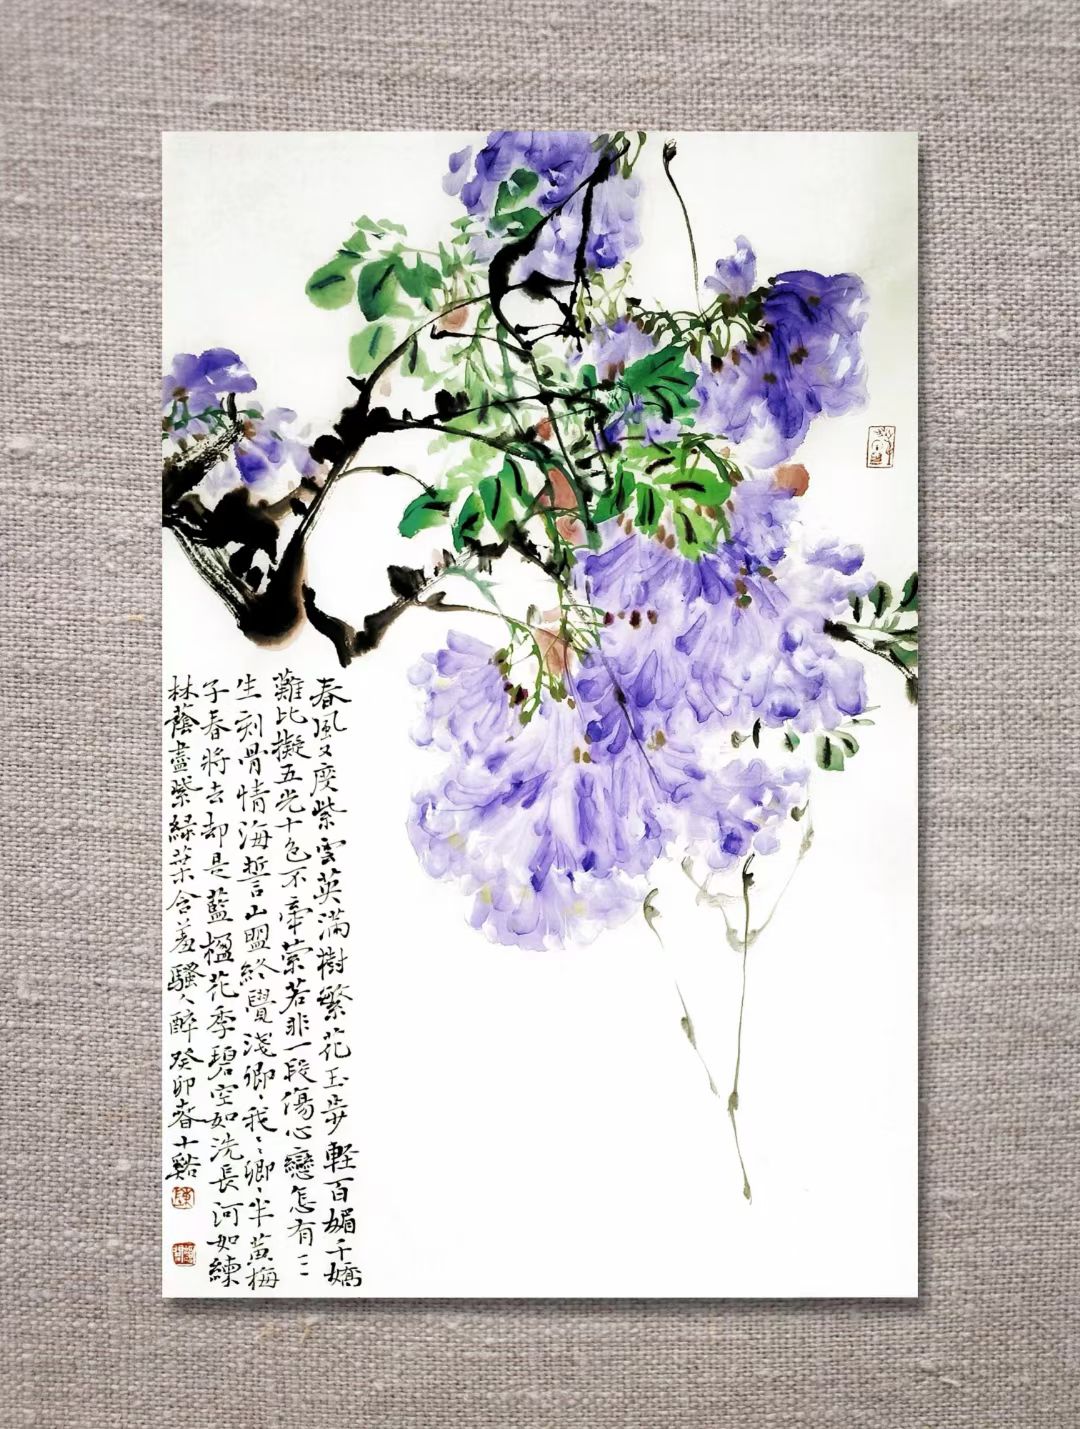 春風又度紫雲英滿樹繁花玉步輕百媚千嬌
難比擬五光十色不牽縈若非一段傷心戀怎有三
生刻骨情海誓山盟終覺淺卿卿我我卿卿半黃梅
子春將去却是藍楹花季碧空如洗長河如練
林蔭盡紫綠葉含羞騷人醉癸卯春十谿